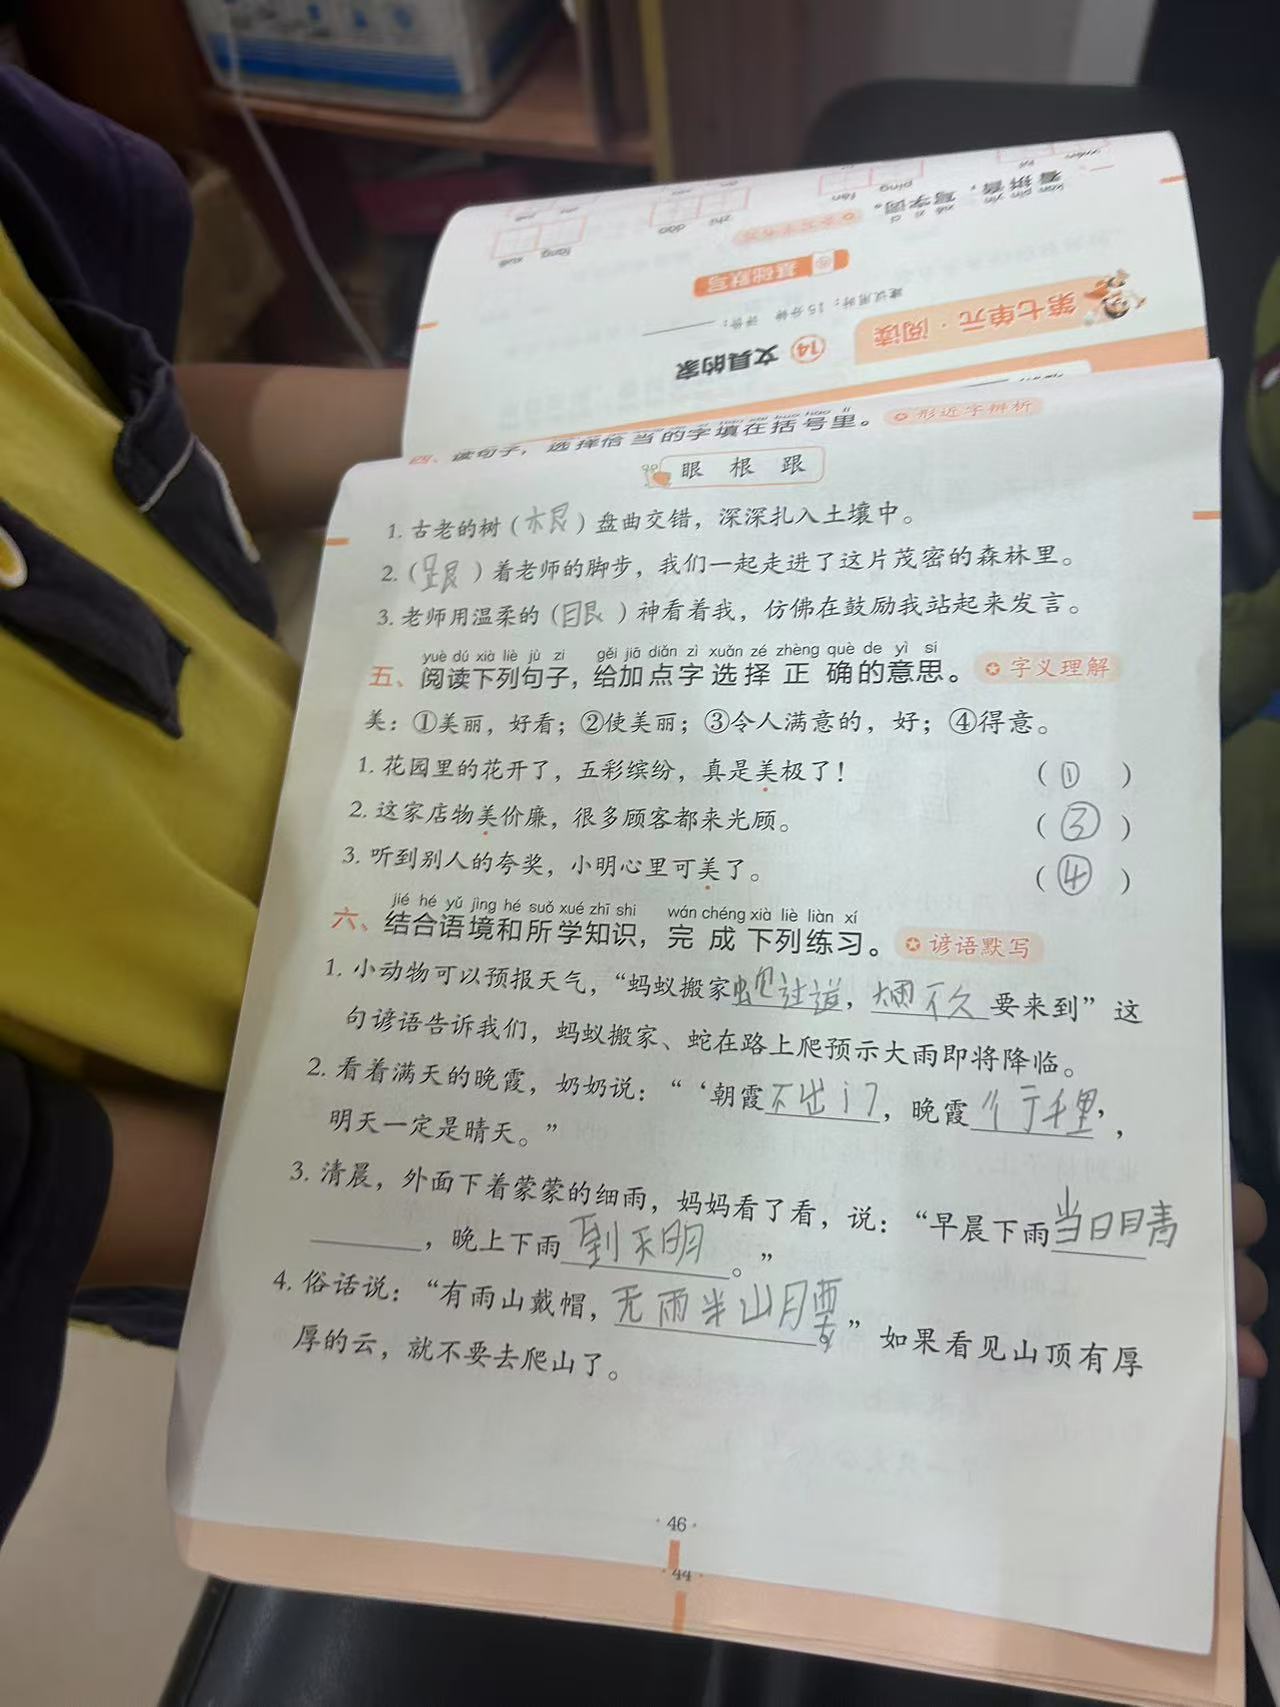 看拼音，写字词。
基础默写
建议用时：15分钟 评价：
第七单元·阅读
14 文具的家
四、读句子，选择恰当的字填在括号里。 形近字辨析
眼 根 跟
1. 古老的树（根）盘曲交错，深深扎入土壤中。
2.（跟）着老师的脚步，我们一起走进了这片茂密的森林里。
3. 老师用温柔的（眼）神看着我，仿佛在鼓励我站起来发言。
yuè dú xià liè jù zi gěi jiā diǎn zì xuǎn zé zhèng què de yì si
五、阅读下列句子，给加点字选择正确的意思。 字义理解
美：①美丽，好看；②使美丽；③令人满意的，好；④得意。
1. 花园里的花开了，五彩缤纷，真是美极了！（①）
2. 这家店物美价廉，很多顾客都来光顾。（③）
3. 听到别人的夸奖，小明心里可美了。（④）
jié hé yǔ jìng hé suǒ xué zhī shi wán chéng xià liè liàn xí
六、结合语境和所学知识，完成下列练习。 谚语默写
1. 小动物可以预报天气，“蚂蚁搬家蛇过道，大雨不久要来到”这
句谚语告诉我们，蚂蚁搬家、蛇在路上爬预示大雨即将降临。
2. 看着满天的晚霞，奶奶说：“‘朝霞不出门，晚霞行千里’，
明天一定是晴天。”
3. 清晨，外面下着蒙蒙的细雨，妈妈看了看，说：“早晨下雨当日晴
，晚上下雨到天明。”
4. 俗话说：“有雨山戴帽，无雨半山腰。”如果看见山顶有厚
厚的云，就不要去爬山了。
·46·
·44·